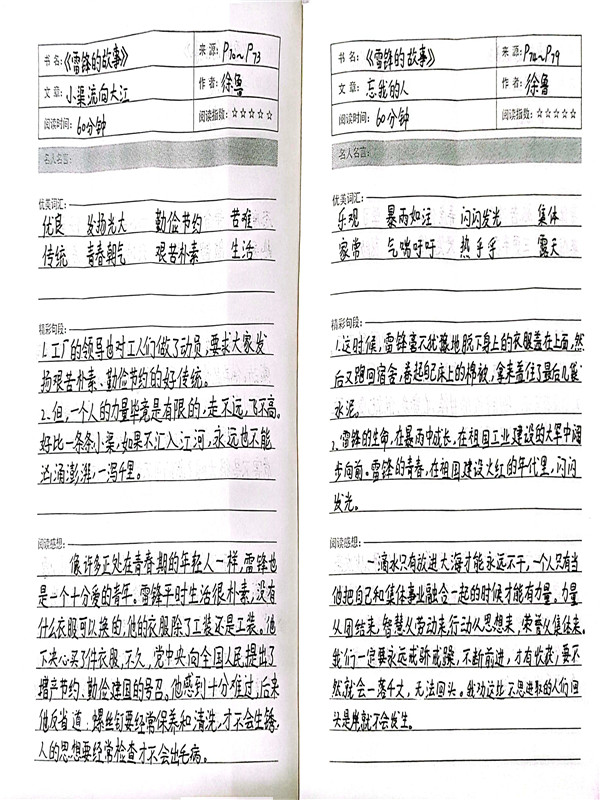 书名:《雷锋的故事》 来源:P70~P73
文章:小渠流向大江 作者:徐鲁
阅读时间:60分钟 阅读指数:☆☆☆☆☆
名人名言:
优美词汇:
优良 发扬光大 勤俭节约 苦难
传统 青春朝气 艰苦朴素 生活
精彩句段:
1.工厂的领导也对工人们做了动员,要求大家发
扬艰苦朴素、勤俭节约的好传统。
2.但,一个人的力量毕竟是有限的,走不远,飞不高。
好比一条条小渠,如果不汇入江河,永远也不能
汹涌澎湃,一泻千里。
阅读感想:
像许多正处在青春期的年轻人一样,雷锋也
是一个十分爱的青年。雷锋平时生活很朴素,没有
什么衣服可以换的,他的衣服除了工装还是工装。他
下决心买了件衣服,不久,党中央向全国人民提出了
增产节约、勤俭建国的号召。他感到十分难过,后来
他反省道:螺丝钉要经常保养和清洗,才不会生锈。
人的思想要经常检查才不会出毛病。
书名:《雷锋的故事》 来源:P74~P79
文章:忘我的人 作者:徐鲁
阅读时间:60分钟 阅读指数:☆☆☆☆☆
名人名言:
优美词汇:
乐观 暴雨如注 闪闪发光 集体
家常 气喘吁吁 热乎乎 露天
精彩句段:
1.这时候,雷锋毫不犹豫地脱下身上的衣服盖在上面,然
后又跑回宿舍,卷起自己床上的棉被,拿来盖住了最后几袋
水泥。
2.雷锋的生命,在暴雨中成长,在祖国工业建设的大军中阔
步向前。雷锋的青春,在祖国建设火红的年代里,闪闪
发光。
阅读感想:
一滴水只有放进大海才能永远不干,一个人只有当
他把自己和集体事业融合一起的时候才能有力量。力量
从团结来,智慧从劳动来行动从思想来,荣誉从集体来。
我们一定要永远戒骄戒躁,不断前进,才有收获,要不
然就会一落千丈,无法回头。我劝这些不思进取的人们回
头是岸就不会发生。